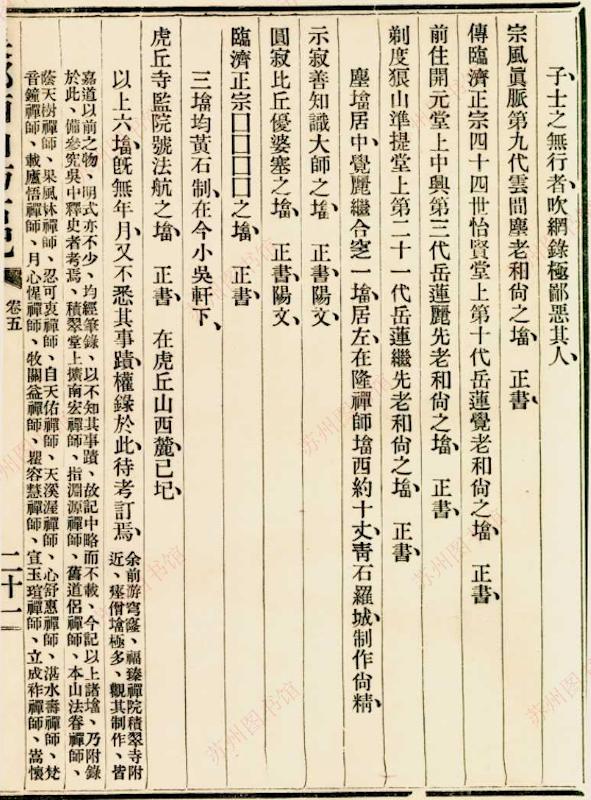 子士之無行者、吹網錄極鄙惡其人、
宗風眞脈第九代雲間塵老和尙之墖、 正書
傳臨濟正宗四十四世怡賢堂上第十代岳蓮覺老和尙之墖、 正書、
前住開元堂上中興第三代岳蓮麗先老和尙之墖、 正書、
剃度狠山準提堂上第二十一代岳蓮繼先老和尙之墖、 正書、
塵墖居中、覺麗繼合窆一墖、居左、在隆禪師墖西約十丈、靑石羅城、制作尙精、
示寂善知識大師之墖、 正書陽文、
圓寂比丘優婆塞之墖、 正書陽文、
臨濟正宗囗囗囗囗之墖、 正書、
三墖均黃石制、在今小吳軒下、
虎丘寺監院號法航之墖、 正書 在虎丘山西麓、已圮、
以上六墖、旣無年月、又不悉其事蹟、權錄於此、待考訂焉、
余前游穹窿、福臻禪院積翠寺附
近、瘞僧墖極多、觀其制作、皆
嘉道以前之物、明式亦不少、均經筆錄、以不知其事蹟、故記中略而不載、今記以上諸墖、乃附錄
於此、備參究吳中釋史者考焉、積翠堂上擴南宏禪師、指淵源禪師、舊道侶禪師、本山法眷禪師、
蔭天樹禪師、杲風林禪師、忍可衷禪師、自天佑禪師、天溪渥禪師、心舒惠禪師、湛水壽禪師、梵
音鐘禪師、載廬悟禪師、月心惺禪師、牧關益禪師、瞿容慧禪師、宣玉瑄禪師、立成祚禪師、嵩懷
卷五
二十一
苏州图书馆